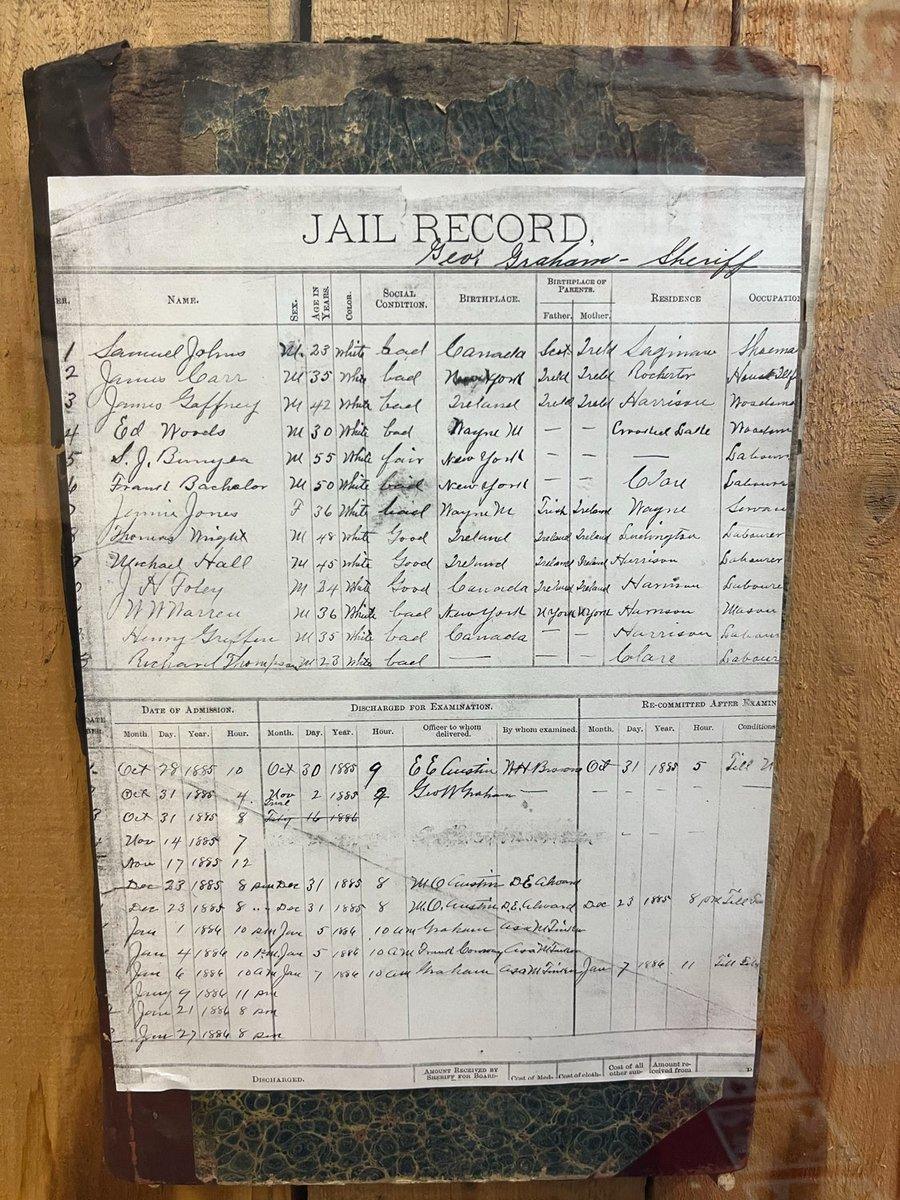 JAIL RECORD,
Geo. Graham - Sheriff
ER. NAME. SEX. AGE IN YEARS. COLOR. SOCIAL CONDITION. BIRTHPLACE. BIRTHPLACE OF PARENTS. RESIDENCE OCCUPATION
Father. Mother.
1 Samuel Johns M. 23 White bad Canada Scot. Ireld Saginaw Shoema
2 James Carr M 35 White bad New York Ireld Ireld Rochester
3 James Gaffney M 42 White bad Ireland Ireld Ireld Harrison Woodsma
4 Ed Woods M 30 White bad Wayne M — — Crooked Lake Woodsm
5 S. J. M 55 White fair New York — — — Labour
6 Frank Bachelor M 50 White bad New York — — Clare Laboure
7 Jennie Jones F 36 White bad Wayne M Irish Ireland Wayne Servan
8 Thomas Wright M 48 White Good Ireland Ireland Ireland Ludington Labourer
9 Michael Hall M 45 White Good Ireland Ireland Ireland Harrison Labourer
0 J H Foley M 34 White Good Canada Ireland Ireland Harrison Laboure
W Warren M 36 White bad New York N York N York Harrison Mason
Henry Griffen M 35 White bad Canada Harrison Labour
Richard Thompson M 23 White bad — — — Clare Labour
DATE OF ADMISSION. DISCHARGED FOR EXAMINATION. RE-COMMITTED AFTER EXAMIN
Month. Day. Year. Hour. Month. Day. Year. Hour. Officer to whom delivered. By whom examined. Month. Day. Year. Hour. Conditions
Oct 28 1885 10 Oct 30 1885 9 E E Austin W H Brown Oct 31 1885 5 Till
Oct 31 1885 4 Nov 2 1885 9 Geo W Graham — — — — —
Oct 31 1885 8 Feby 16 1886
Nov 14 1885 7 — —
Nov 17 1885 12
Dec 23 1885 8 pm Dec 31 1885 8 M. O Austin D. E Alward
Dec 23 1885 8 " " Dec 31 1885 8 M. O. Austin D. E. Alward Dec 23 1885 8 pm Till
Jan 1 1886 10 pm Jan 5 1886 10 am Graham Asa M Tinker
Jan 4 1886 10 pm Jan 5 1886 10 am Frank Conway Asa M Tinker
Jan 6 1886 10 am Jan 7 1886 10 am Graham Asa M Tinker Jan 7 1886 11 Till
Jany 9 1886 11 pm
Jan 21 1886 8 pm
Jan 27 1886 8 pm
DISCHARGED. AMOUNT RECEIVED BY SHERIFF FOR BOARD- Cost of Med- Cost of cloth- Cost of all other sun- Amount re- ceived from